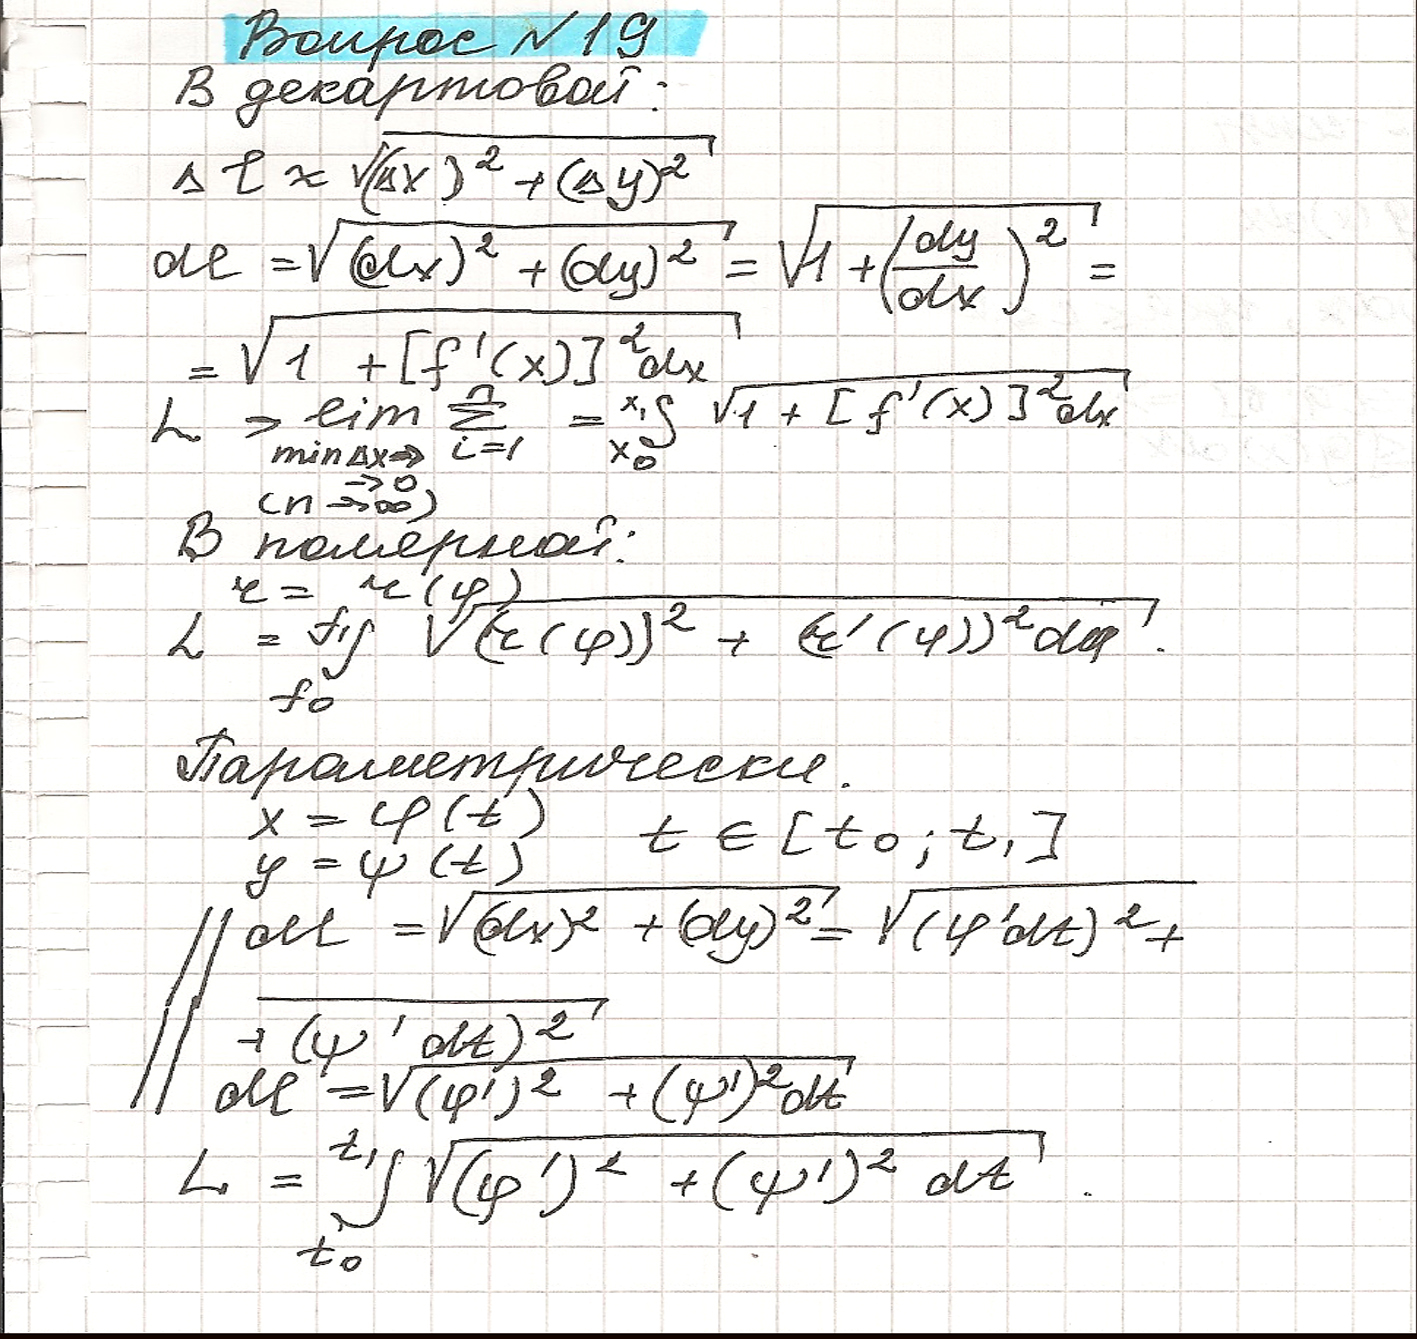 Вопрос №19
В декартовой:
Δl ≈ √((Δx)² + (Δy)²)
dl = √((dx)² + (dy)²) = √(1 + (dy/dx)²) =
= √(1 + [f'(x)]² dx)
L => lim Σ = ∫ √(1 + [f'(x)]² dx)
min Δx → i=1 n x₀ x₁
→ 0
(n → ∞)
В полярной:
r = r(φ)
L = ∫ √((r(φ))² + (r'(φ))² dφ).
f₀ f₁
Параметрически.
x = φ(t)
y = ψ(t) t ∈ [t₀; t₁]
dl = √((dx)² + (dy)²) = √((φ'dt)² +
+ (ψ'dt)²)
dl = √((φ')² + (ψ')² dt)
L = ∫ √((φ')² + (ψ')² dt).
t₀ t₁